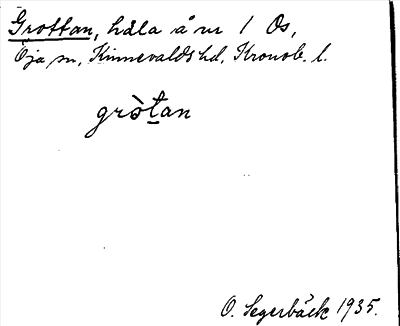 Grottan, håla å nr 1 Os,
Öja sn, Kinnevalds hd, Kronob. l.
gròt̲an
O. Segerbäck 1935.